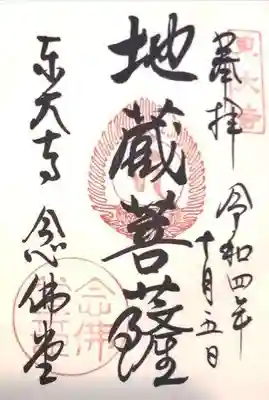 奉拝 令和四年
十月五日
地蔵菩薩
東大寺 念佛堂
東大寺
念佛